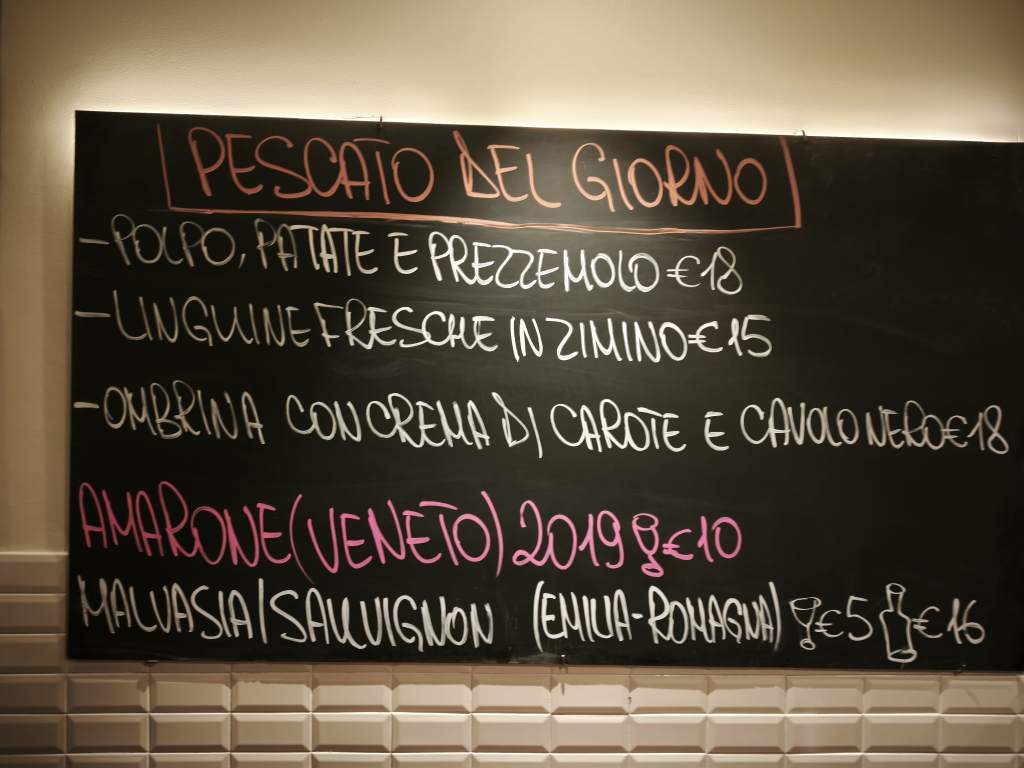 PESCATO DEL GIORNO
- POLPO, PATATE E PREZZEMOLO €18
- LINGUINE FRESCHE IN ZIMINO €15
- OMBRINA CON CREMA DI CAROTE E CAVOLO NERO €18
AMARONE (VENETO) 2019 €10
MALVASIA/SAUVIGNON (EMILIA-ROMAGNA) €5 €16